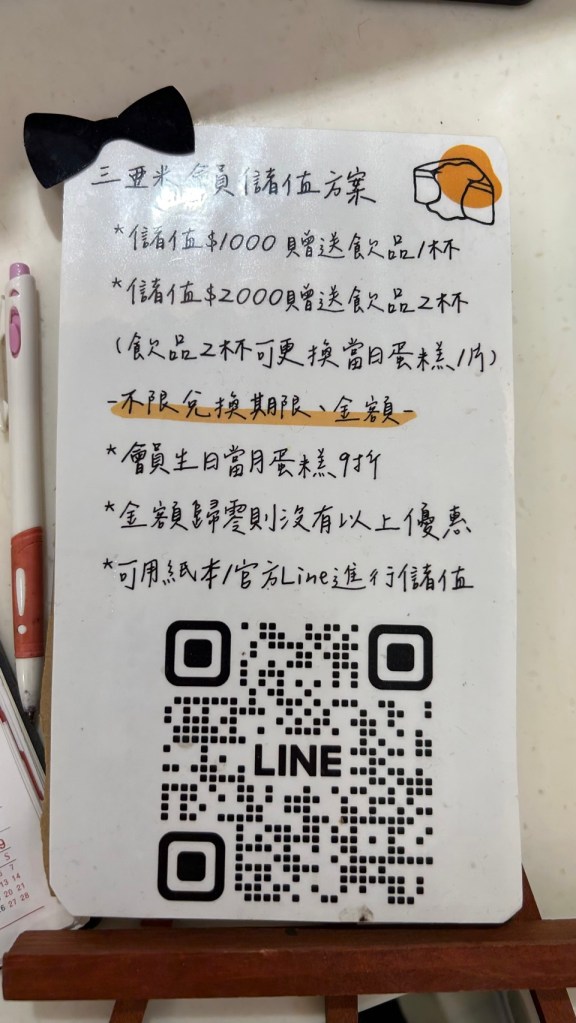 三亜米會員儲值方案
*儲值$1000贈送飲品1杯
*儲值$2000贈送飲品2杯
(飲品2杯可更換當日蛋糕1片)
-不限兌換期限、金額-
*會員生日當月蛋糕9折
*金額歸零則沒有以上優惠
*可用紙本/官方Line進行儲值
LINE
9
S
7
13 14
20 21
26 27 28